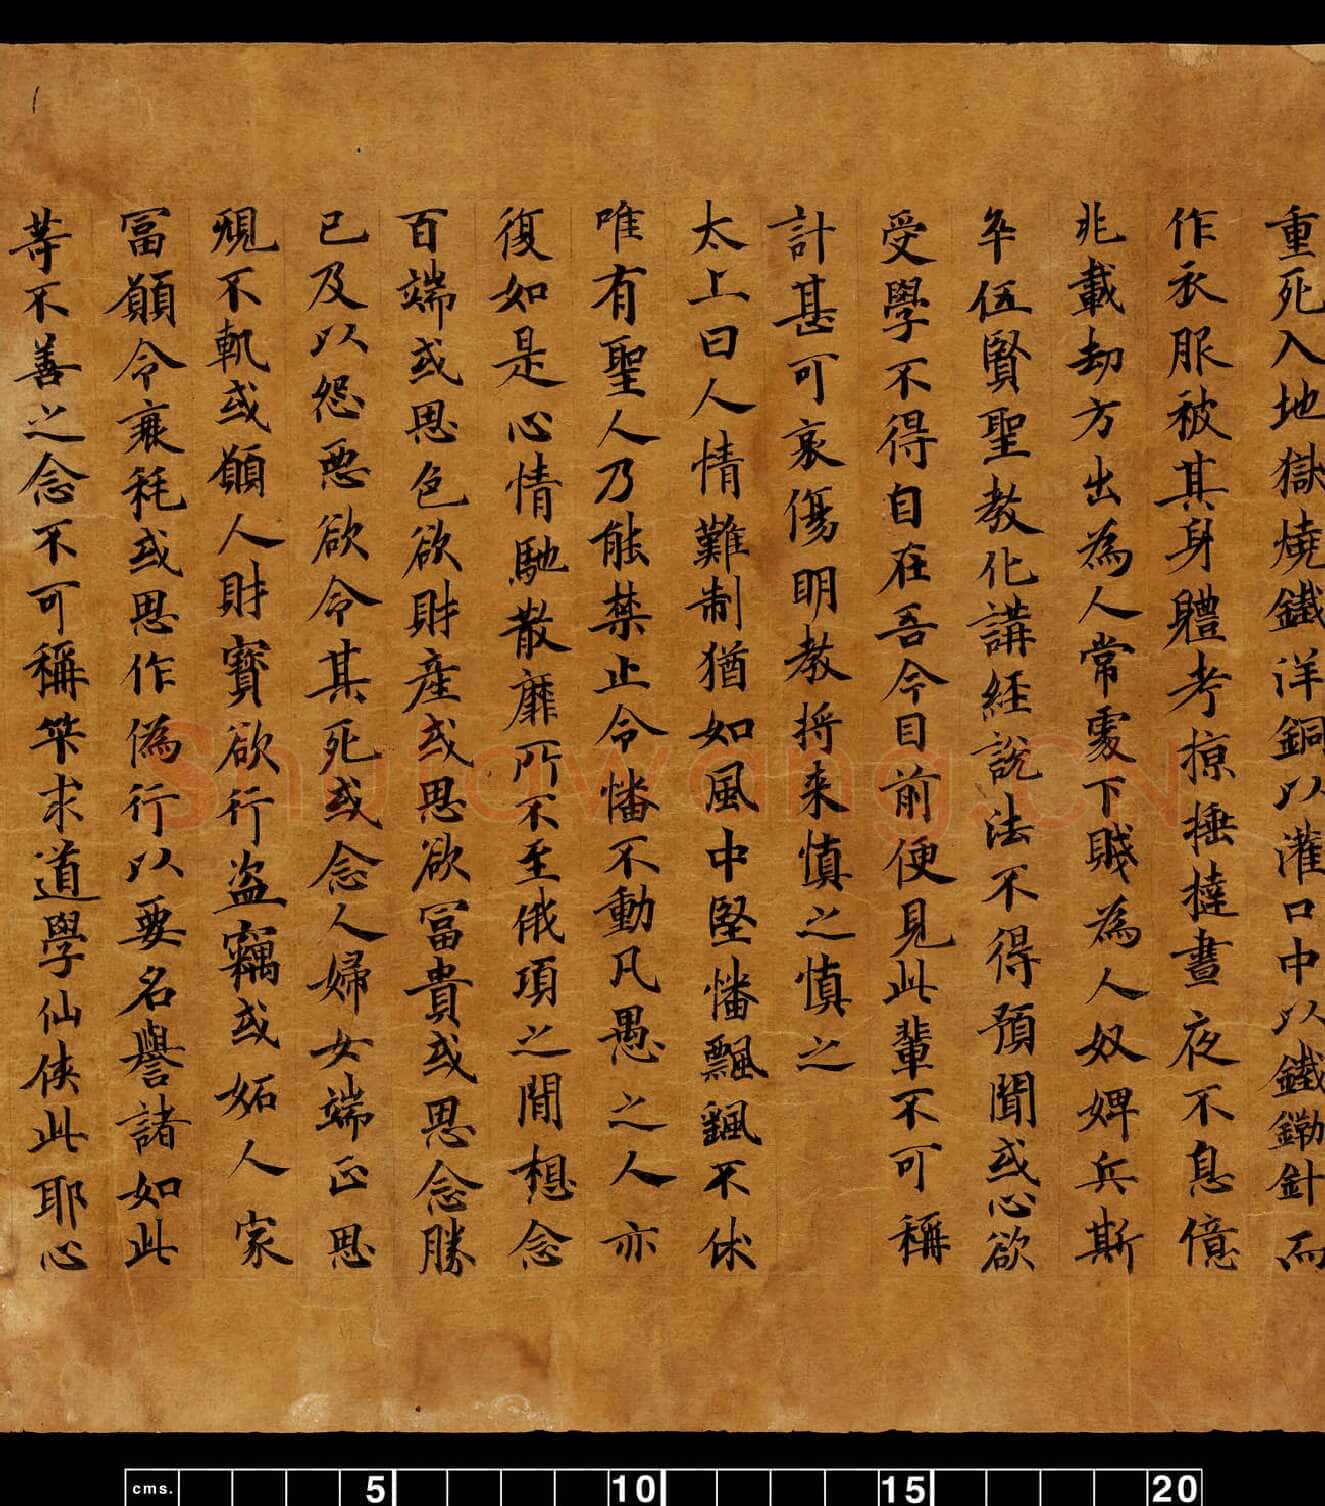 重死入地獄燒鐵洋銅以灌口中以鐵鏘針而
作衣服被其身體考掠捶撻晝夜不息億
兆載劫方出為人常處下賤為人奴婢兵斯
卒伍賢聖教化講經說法不得預聞或心欲
受學不得自在吾今目前便見此輩不可稱
計甚可哀傷明教將来慎之慎之
太上曰人情難制猶如風中堅憣飄颻不休
唯有聖人乃能禁止令憣不動凡愚之人亦
復如是心情馳散靡所不至俄項之間想念
百端或思色欲財產或思欲冨貴或思念勝
已及以怨惡欲令其死或念人婦女端正思
覞不軌或願人財寶欲行盗竊或妬人家
冨願令衰秏或思作偽行以要名譽諸如此
等不善之念不可稱筭求道學仙侠此耶心
cms. 5 10 15 20
Shufawang.CN